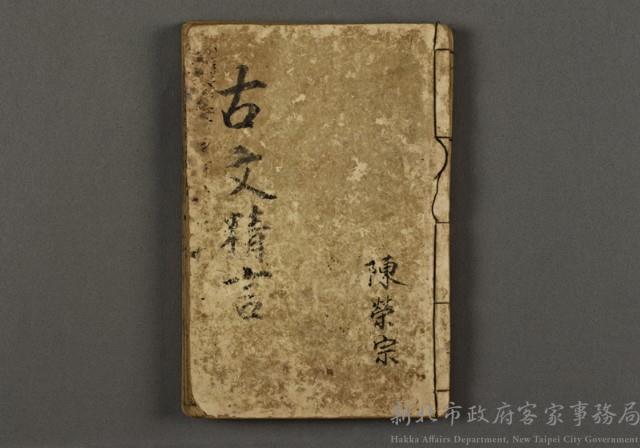 古文精言
陳榮宗
新北市政府客家事務局
Hakka Affairs Department, New Taipei City Government